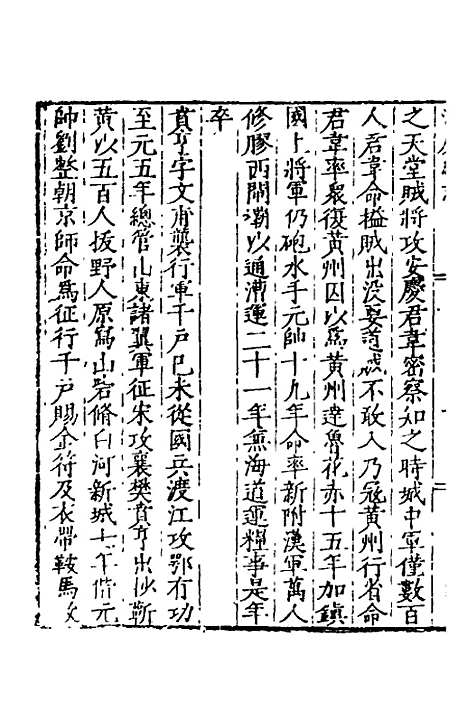 之天堂賊將攻安慶君韋密察知之時城中軍僅數百
人君韋命搤賊出沒要道賊不敢入乃冦黃州行省命
君韋率衆復黃州因以爲黃州達魯花赤十五年加鎮
國上將軍仍砲水手元帥十九年命率新附漢軍萬人
修膠西閘壩以通漕運二十一年無海道運糧事是年
卒
賁亨字文甫襲行軍千戶巳未從國兵渡江攻鄂有功
至元五年總管山東諸翼軍征宋攻襄樊賁亨出沙靳
黃以五百人拔野人原寫山砦脩白河新城七年偕元
帥劉整朝京師命爲征行千戶賜金符及衣帶鞍馬攻